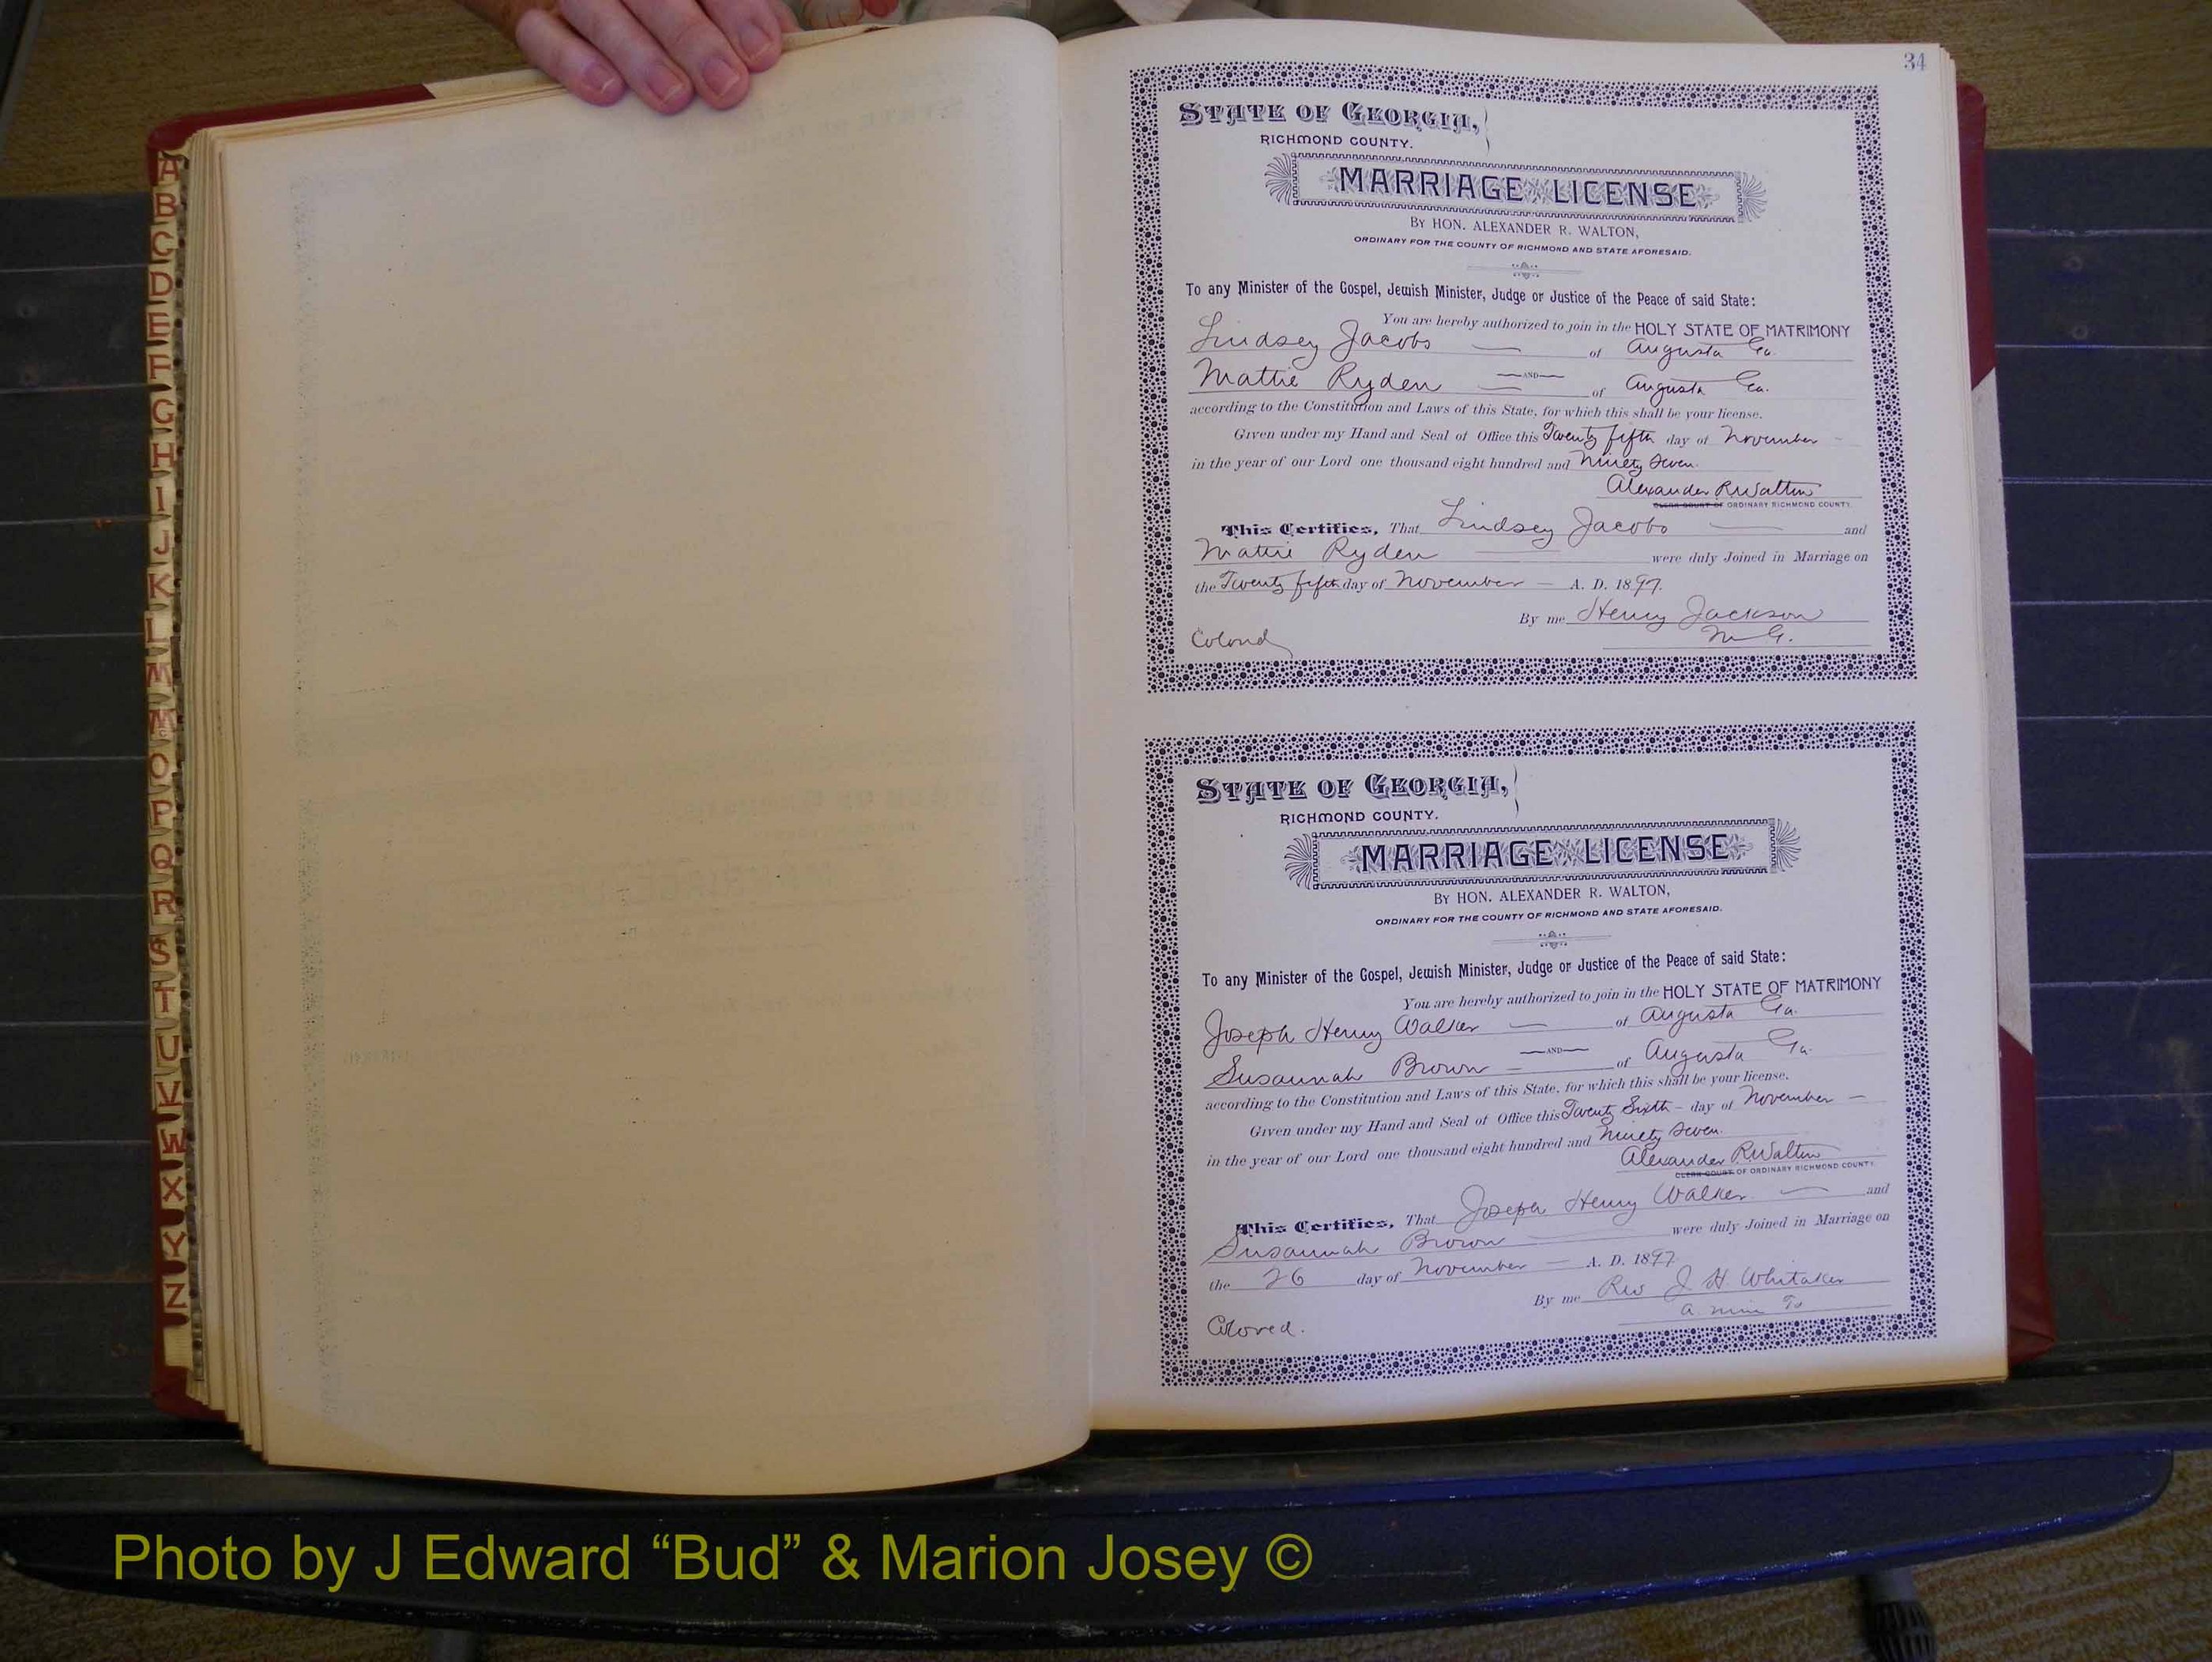 A
B
C
D
E
F
G
H
I
J
K
L
M
Mc
O
P
Q
R
S
T
U
V
W
X
Y
Z
34
STATE OF GEORGIA,
RICHMOND COUNTY.
MARRIAGE LICENSE
BY HON. ALEXANDER R. WALTON,
ORDINARY FOR THE COUNTY OF RICHMOND AND STATE AFORESAID.
To any Minister of the Gospel, Jewish Minister, Judge or Justice of the Peace of said State:
You are hereby authorized to join in the HOLY STATE OF MATRIMONY
Lindsey Jacobs — of Augusta Ga.
—AND—
Mattie Ryden — of Augusta Ga.
according to the Constitution and Laws of this State, for which this shall be your license.
Given under my Hand and Seal of Office this Twenty fifth day of November —
in the year of our Lord one thousand eight hundred and Ninety Seven.
Alexander R Walton
CLERK COURT OF ORDINARY RICHMOND COUNTY.
This Certifies, That Lindsey Jacobs — and
Mattie Ryden — were duly Joined in Marriage on
the Twenty fifth day of November — A. D. 1897.
By me Henry Jackson
M G.
Colored
STATE OF GEORGIA,
RICHMOND COUNTY.
MARRIAGE LICENSE
BY HON. ALEXANDER R. WALTON,
ORDINARY FOR THE COUNTY OF RICHMOND AND STATE AFORESAID.
To any Minister of the Gospel, Jewish Minister, Judge or Justice of the Peace of said State:
You are hereby authorized to join in the HOLY STATE OF MATRIMONY
Joseph Henry Walker — of Augusta Ga.
—AND—
Susannah Brown — of Augusta Ga.
according to the Constitution and Laws of this State, for which this shall be your license.
Given under my Hand and Seal of Office this Twenty Sixth – day of November —
in the year of our Lord one thousand eight hundred and Ninety Seven.
Alexander R Walton
CLERK COURT OF ORDINARY RICHMOND COUNTY.
This Certifies, That Joseph Henry Walker — and
Susannah Brown — were duly Joined in Marriage on
the 26 day of November — A. D. 1897
By me Rev J H Whitaker
Colored.
Photo by J Edward “Bud” & Marion Josey ©